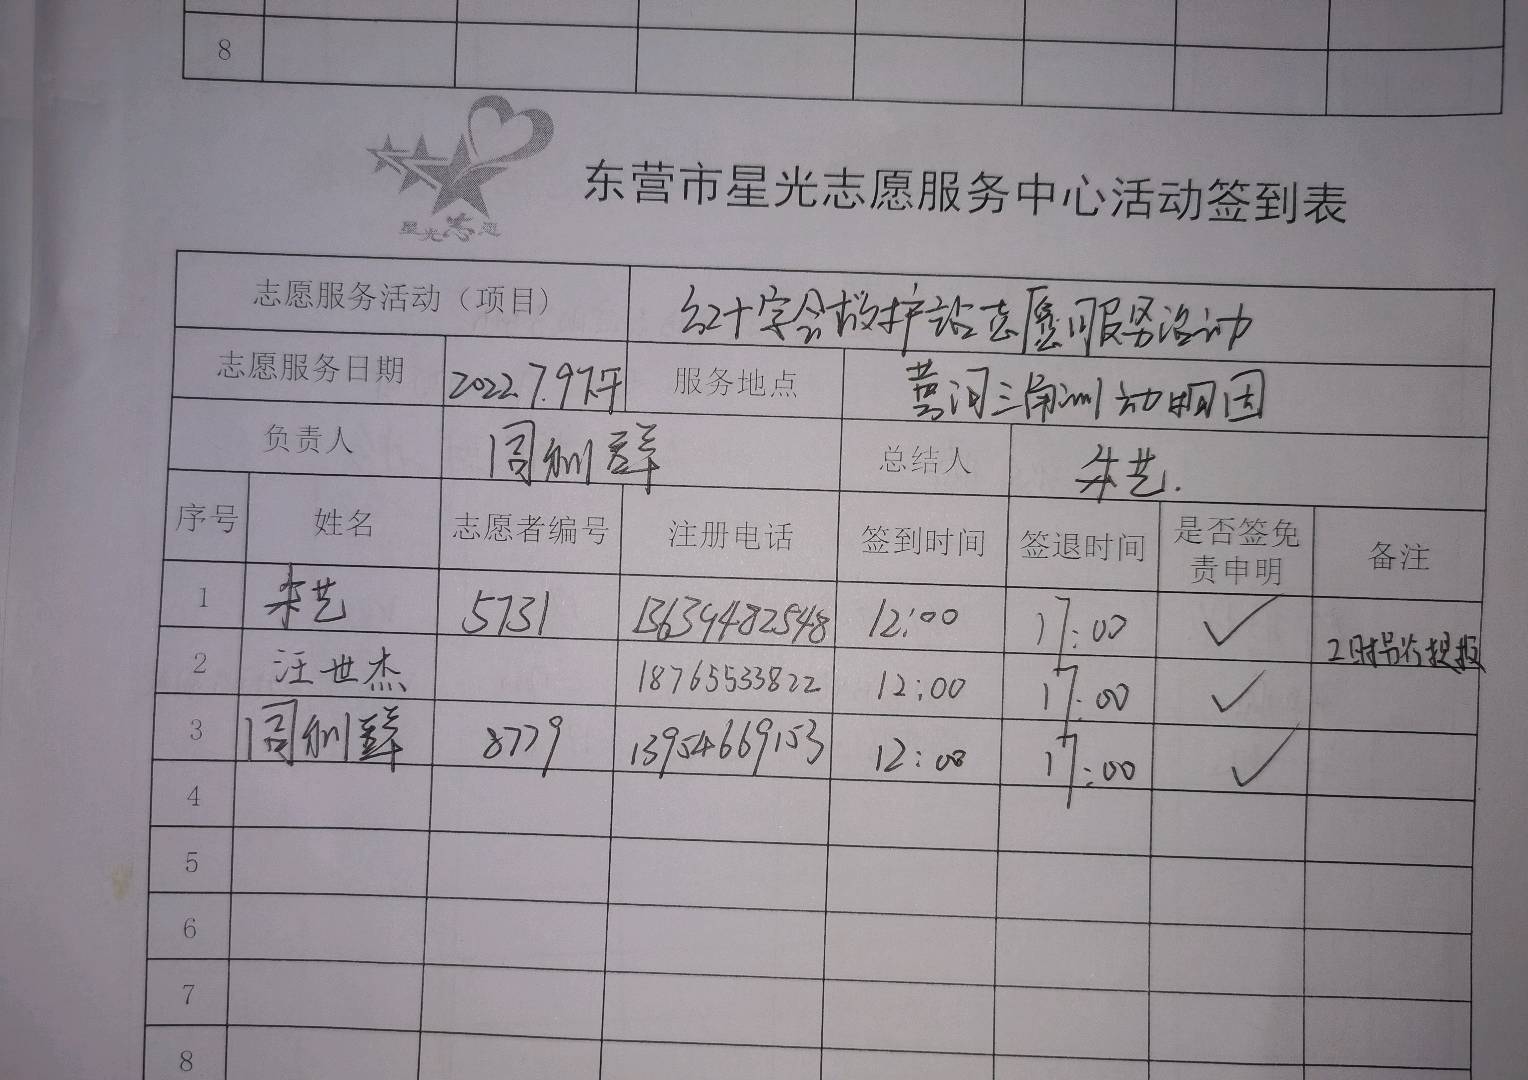 8
星光志愿
东营市星光志愿服务中心活动签到表
志愿服务活动（项目） 红十字会救护站志愿服务活动
志愿服务日期 2022.7.9下午 服务地点 黄河三角洲动物园
负责人 周训群 总结人 朱艺.
序号 姓名 志愿者编号 注册电话 签到时间 签退时间 是否签免责申明 备注
1 朱艺 5731 13639482548 12:00 17:00 ✓
2 汪世杰 18765533822 12:00 17:00 ✓
3 周训群 8779 13954669153 12:00 17:00 ✓
4
5
6
7
8